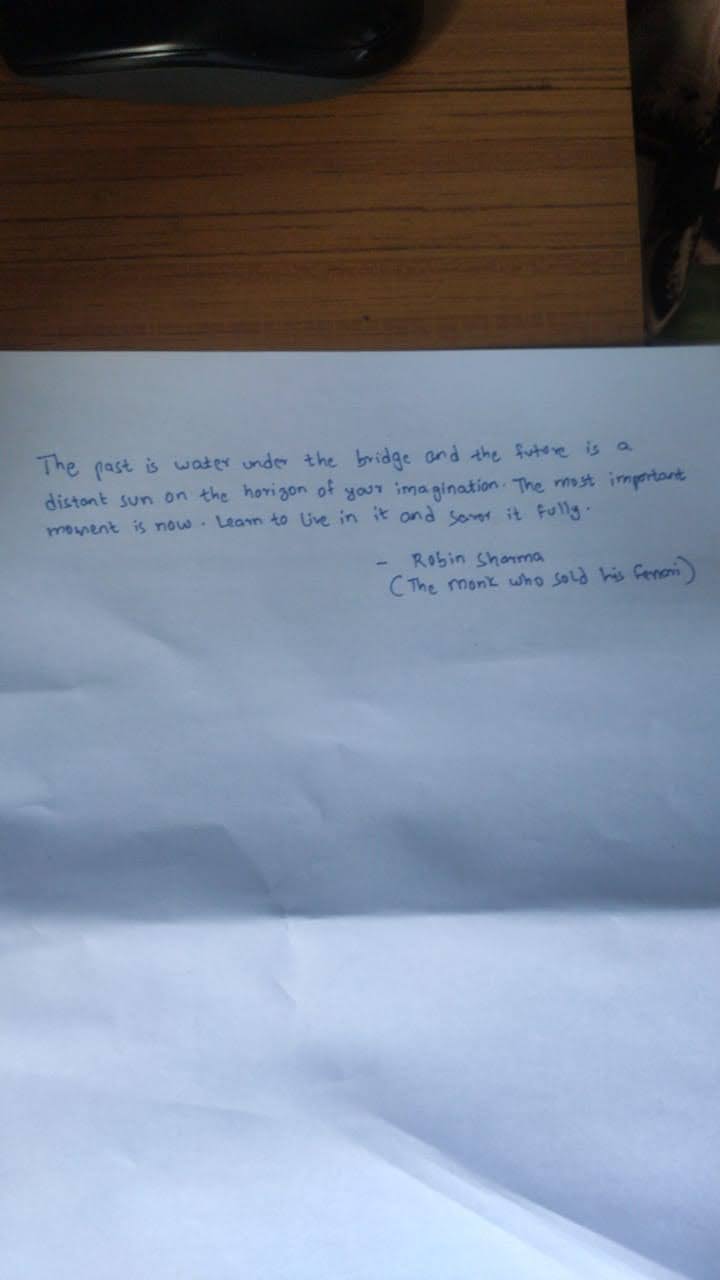 The past is water under the bridge and the future is a
distant sun on the horizon of your imagination. The most important
moment is now. Learn to live in it and savor it fully.
- Robin Sharma
(The monk who sold his ferrari)